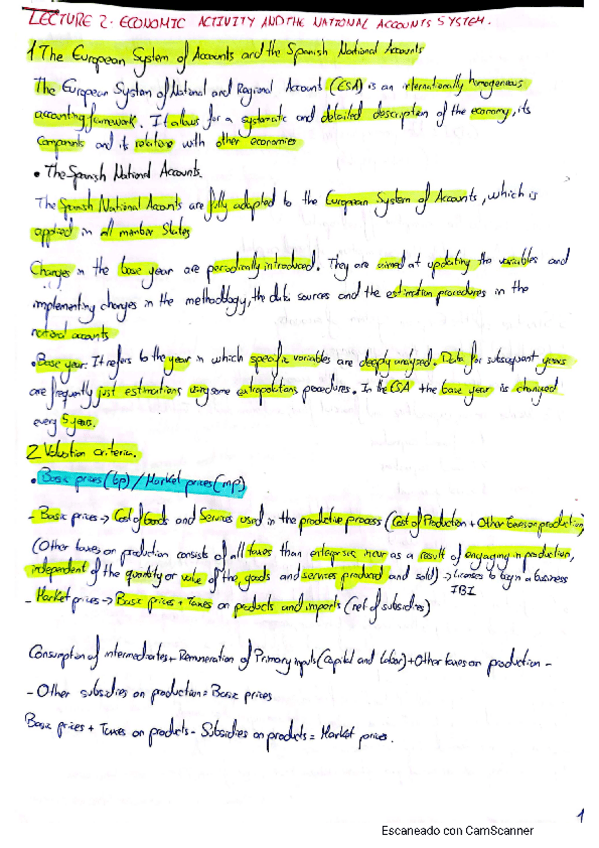 LECTURE 2. ECONOMIC ACTIVITY AND THE NATIONAL ACCOUNTS SYSTEM.
1 The European System of Accounts and the Spanish National Accounts
The European System of National and Regional Account (ESA) is an internationally homogeneous
accounting framework. It allows for a systematic and detailed description of the economy, its
components and its relations with other economies
• The Spanish National Accounts.
The Spanish National Accounts are fully adapted to the European System of Accounts, which is
applied in all member States
Changes in the base year are periodically introduced. They are aimed at updating the variables and
implementing changes in the methodology, the data sources and the estimation procedures in the
national accounts
• Base year: It refers to the year in which specific variables are deeply analysed. Data for subsequent years
are frequently just estimations using some extrapolations procedures. In the ESA the base year is changed
every 5 years.
2 Valuation criteria.
• Basic prices (bp) / Market prices (mp)
- Basic prices → Cost of Goods and Services used in the productive process (Cost of Production + Other taxes on production)
(Other taxes on production consists of all taxes than enterprises incur as a result of engaging in production,
independent of the quantity or value of the goods and services produced and sold) → Licenses to begin a business
IBI
- Market prices → Basic prices + Taxes on products and imports (net of subsidies)
Consumption of intermediates + Remuneration of Primary inputs (Capital and labor) + Other taxes on production -
- Other subsidies on production = Basic prices
Basic prices + Taxes on products - Subsidies on products = Market prices.
1
Escaneado con CamScanner